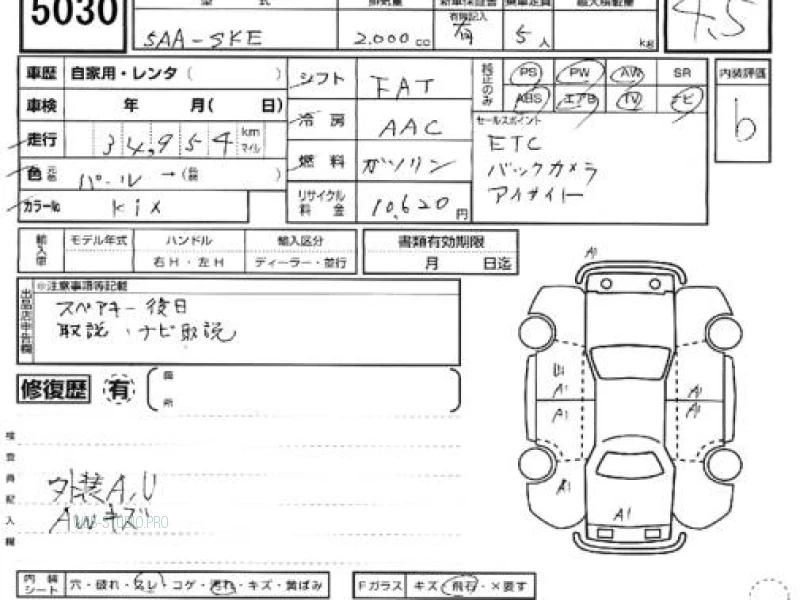 5030
型 式
排気量
新車保証書
有償記入
乗車定員
最大積載量
5AA-SKE
2.000 cc
有
5 人
kg
4.5
車歴 自家用・レンタ ( )
シフト FAT
純正のみ PS PW AW SR
ABS エアB TV ナビ
内装評価
b
車検 年 月( 日)
冷房 AAC
セールスポイント
ETC
バックカメラ
アイサイト
走行 34,954 km マイル
燃料 ガソリン
色 元色 パール →(
カラーNo Kix
リサイクル料金 10,620 円
輸入車 モデル年式 ハンドル 輸入区分
右H・左H ディーラー・並行
書類有効期限
月 日迄
出品店申告欄
※注意事項等記載
スペアキー後日
取説、ナビ取説
修復歴 有
箇所
検査員記入欄
外装A,U
AWキズ
A1
U
A1
A1
A1
A1
A1
A1
内装シート 穴・破れ・スレ・コゲ・汚れ・キズ・黄ばみ
Fガラス キズ・飛石・×要す